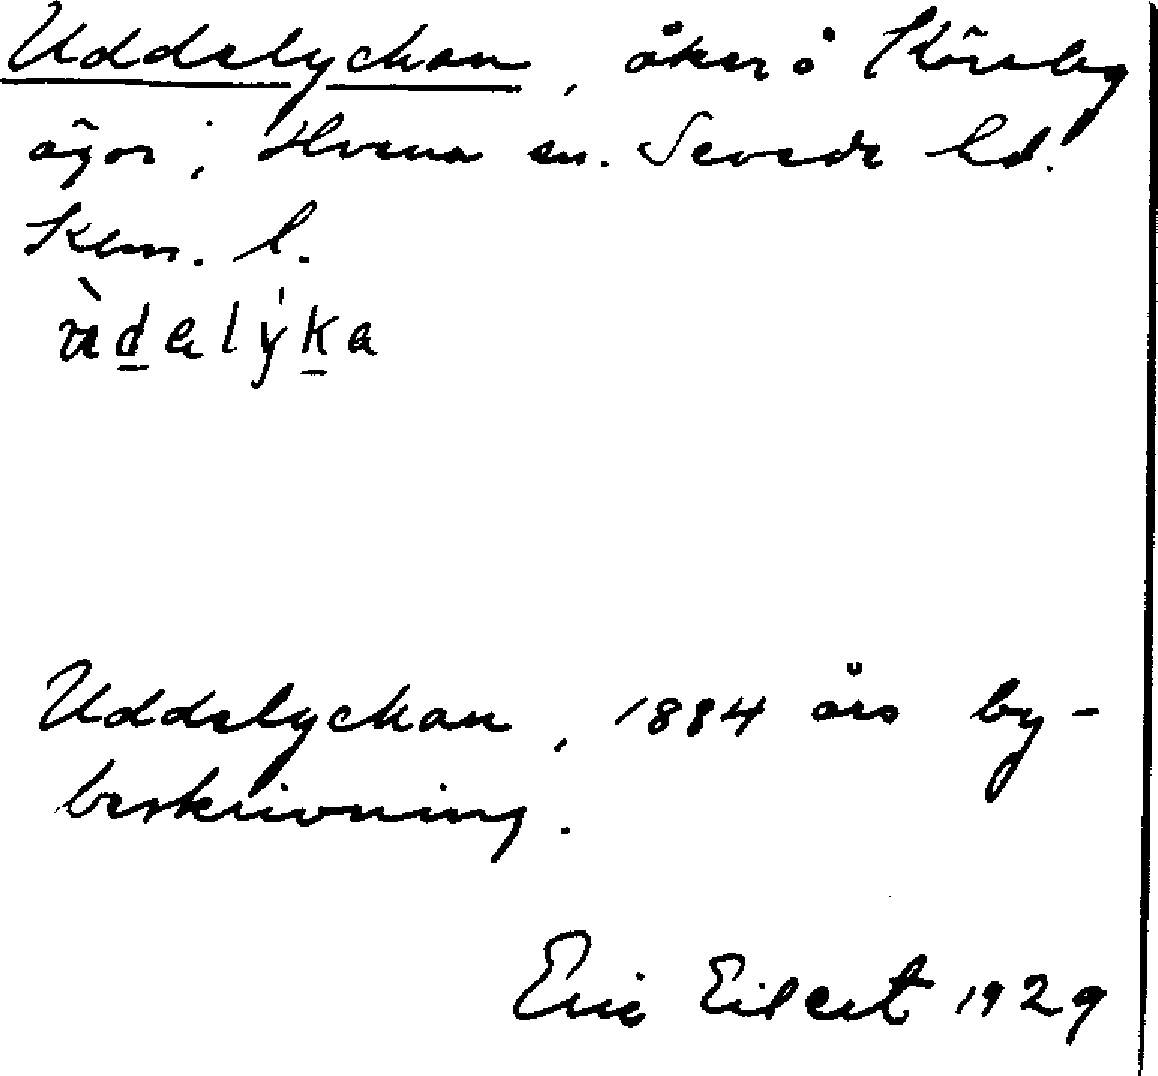 Uddelyckan, åker å Köreby
ägor i Hvena sn. Sevede hd.
Klm. l.
ùdalýka
Uddelyckan, 1884 års by-
beskrivning.
Eric Eilert 1929